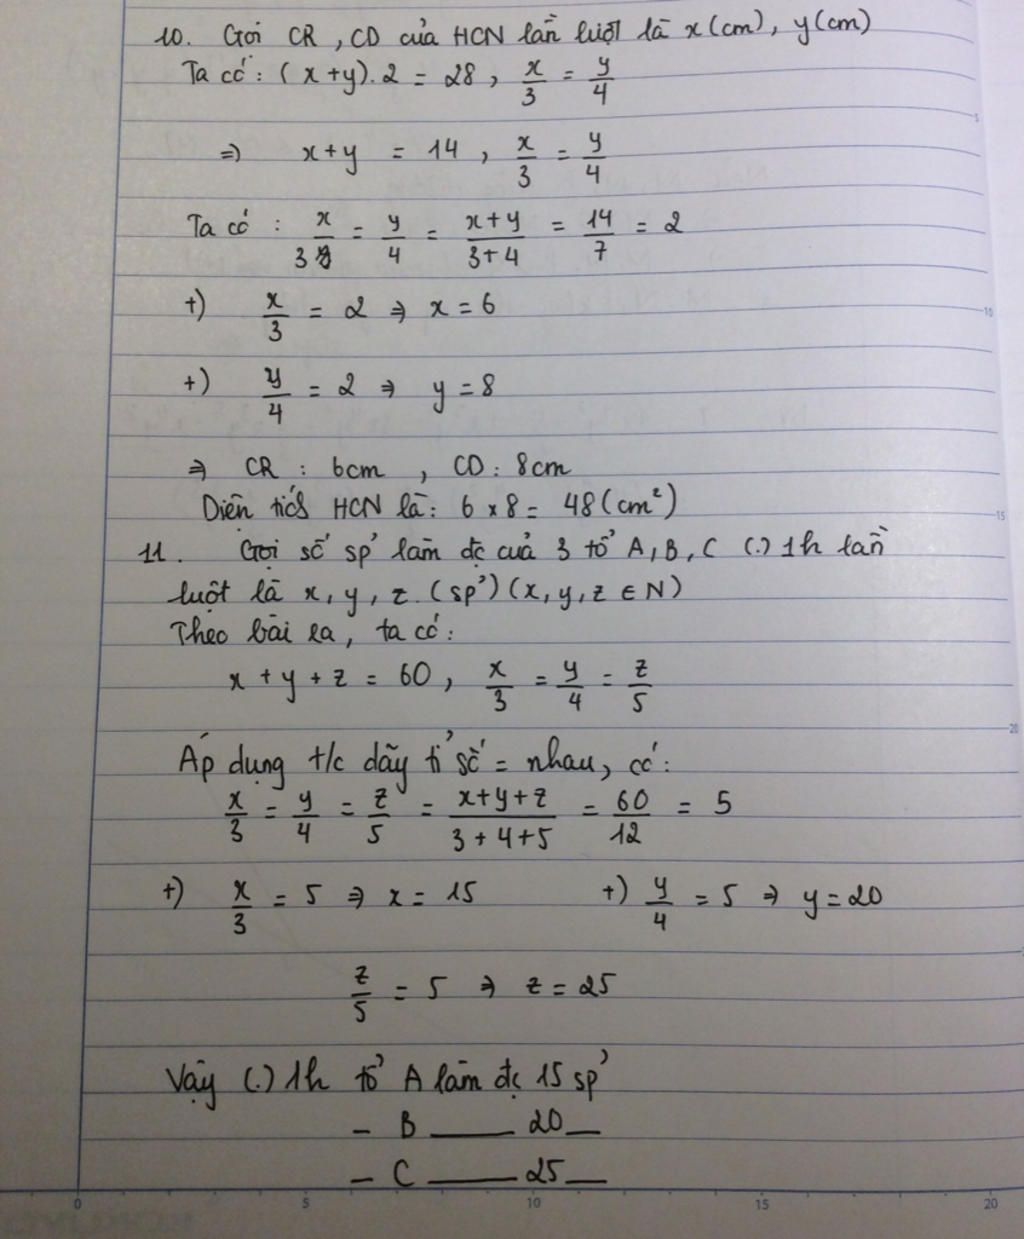 10. Gọi CR, CD của HCN lần lượt là x(cm), y(cm)
Ta có: (x+y).2 = 28, x/3 = y/4
=> x+y = 14, x/3 = y/4
Ta có: x/3 = y/4 = x+y/3+4 = 14/7 = 2
+) x/3 = 2 => x = 6
+) y/4 = 2 => y = 8
=> CR: 6cm, CD: 8cm
Diện tích HCN là: 6 x 8 = 48 (cm²)
11. Gọi số sp' làm đc của 3 tổ A, B, C (.) 1h lần
lượt là x, y, z. (sp') (x, y, z ∈ N)
Theo bài ra, ta có:
x + y + z = 60, x/3 = y/4 = z/5
Áp dụng t/c dãy tỉ số = nhau, có:
x/3 = y/4 = z/5 = x+y+z/3+4+5 = 60/12 = 5
+) x/3 = 5 => x = 15 +) y/4 = 5 => y = 20
z/5 = 5 => z = 25
Vậy (.) 1h tổ A làm đc 15 sp'
- B ___ 20 _
- C ___ 25 _
0 5 10 15 20